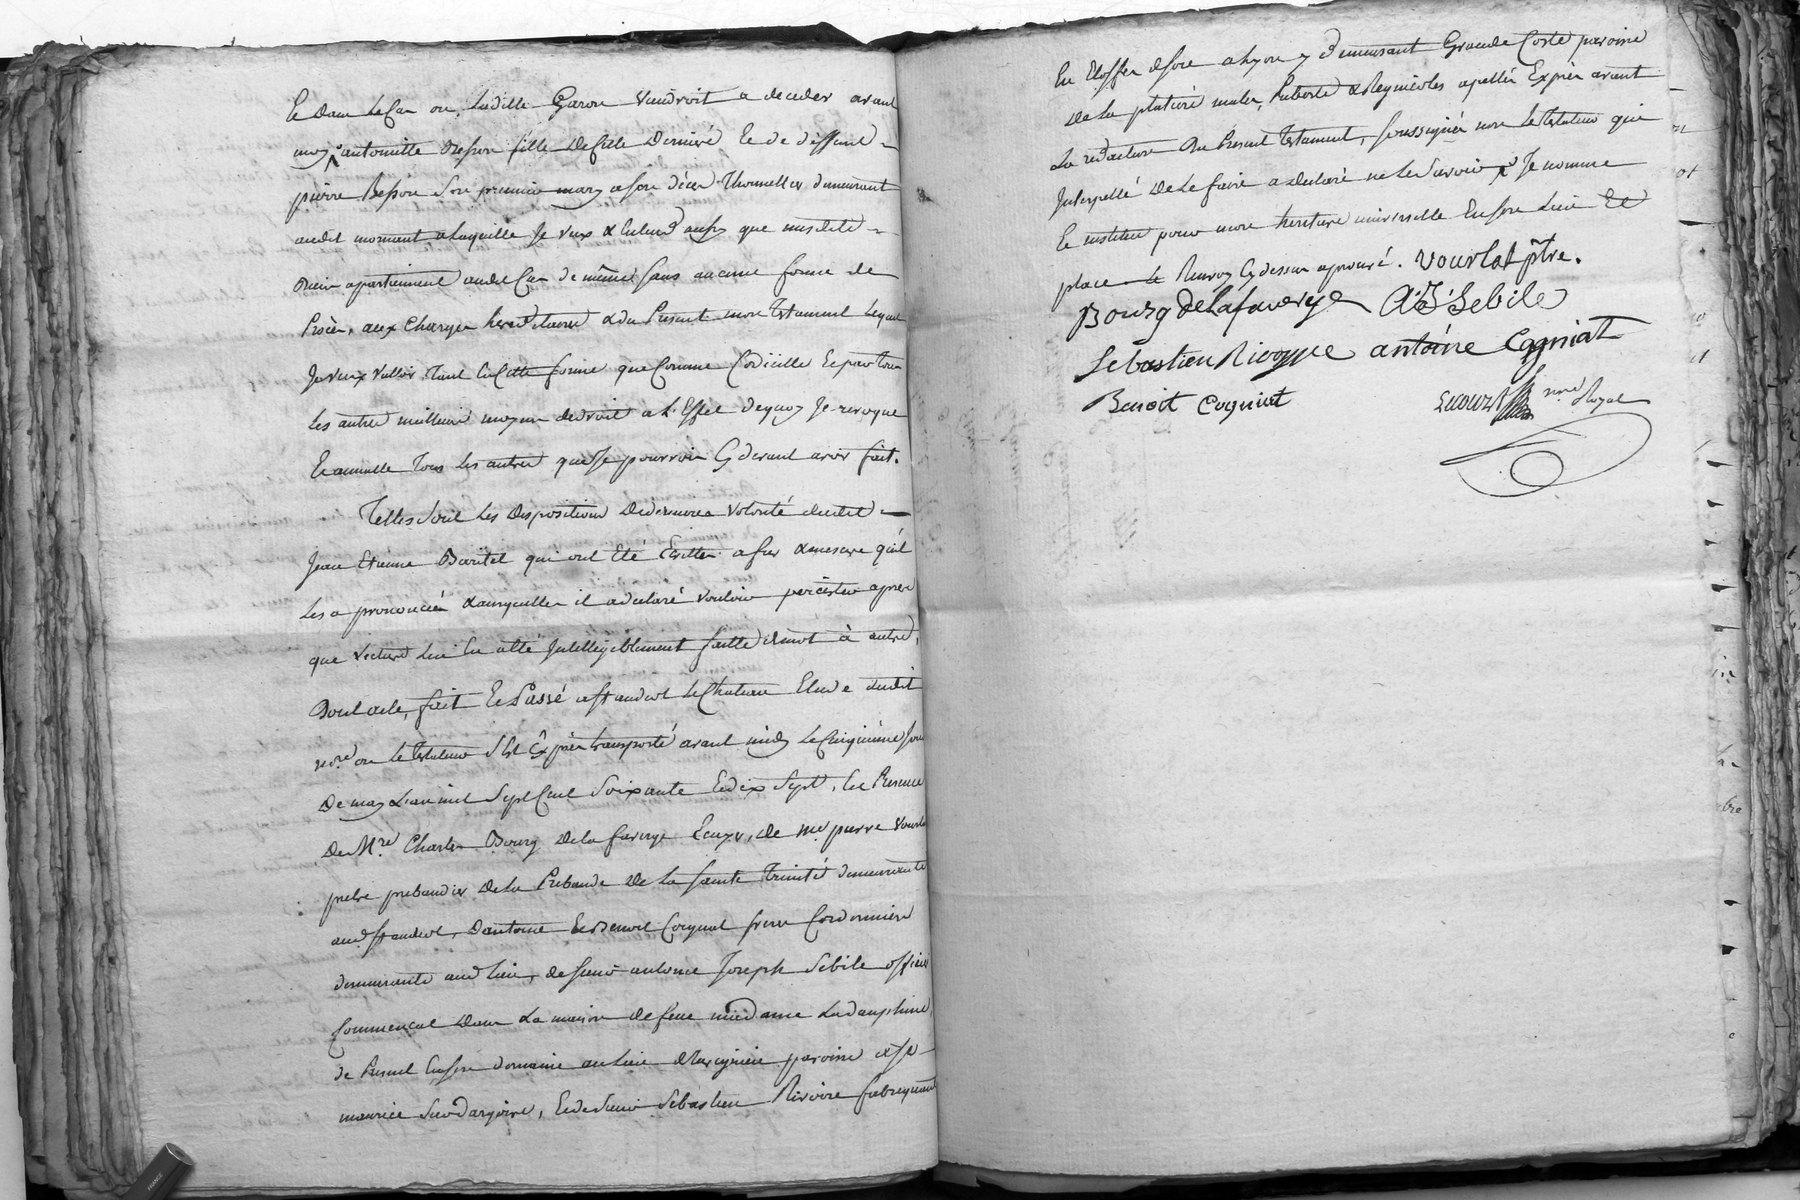 Et dans le Cas ou, Ladille Garon viendroit a deceder avant
moy antoinette Besson fille de cette Derniere Et de deffunt
pierre Besson son premier mary a son décès Thomelles demeurant
audit moment, a Laquelle Je veux & Entend aussy que mesdits
Biens apartiennent audit Cas de même sans aucune forme de
Procès, aux Charges hereditaires & du Present mon Testament Lequel
Je veux valloir Tant En Cette forme que Comme Codicille Et par tous
Les autres meilleurs moyens de droit a L'Effet de quoy Je revoque
Et annulle Tous Les autres que Je pourrois Cy devant avoir fait.
Telles sont Les Dispositions De derniere volonté dudit
Jean Etienne Baritel qui ont Eté Ecrittes a fur & mesure qu'il
Les a prononcées & auxquelles il a declaré vouloir persister apres
que Lecture Lui En a Eté Intelligiblement faitte de mot à autre,
Dont acte, fait Et Passé a St andeol Le Chateau Etude dudit
nore ou Le Testateur s'est Exprès transporté avant midy Le Cinquième Jour
De may L'an mil Sept Cent Soixante Et dix Sept, En Presence
De Mre Charles Bourg De la faverge Ecuyer, de Me pierre Vourlat
pretre prebandier De La Prebande De La sainte Trinité demeurants
aud St andeol, d'antoine Et Benoit Cogniat freres Cordonniers
demeurants aud Lieu, de sieur antoine Joseph Sebile officier
Commençal dans La maison de feue madame La dauphine
de Present En son domaine au Lieu de paroisse de St
maurice Sur dargoire, Et de Sieur Sebastien Rivoire fabriquant
En Etoffes de soie a Lyon y demeurant Grande Coste paroisse
De La platiere males, Puberes & Regnicoles apellés Exprès avant
La redaction Du Present Testament, soussignés non Le Testateur qui
Interpellé De Le faire a declaré ne Le Savoir Je nomme
Et institue pour mon heritiere universelle En son Lieu Et
place Le Renvoy Cy dessus aprouvé. Vourlat ptre.
Bourg de Lafaverge A. J. Sebile
Sebastien Rivoyre antoine Cogniat
Benoit Cogniat nore Royal